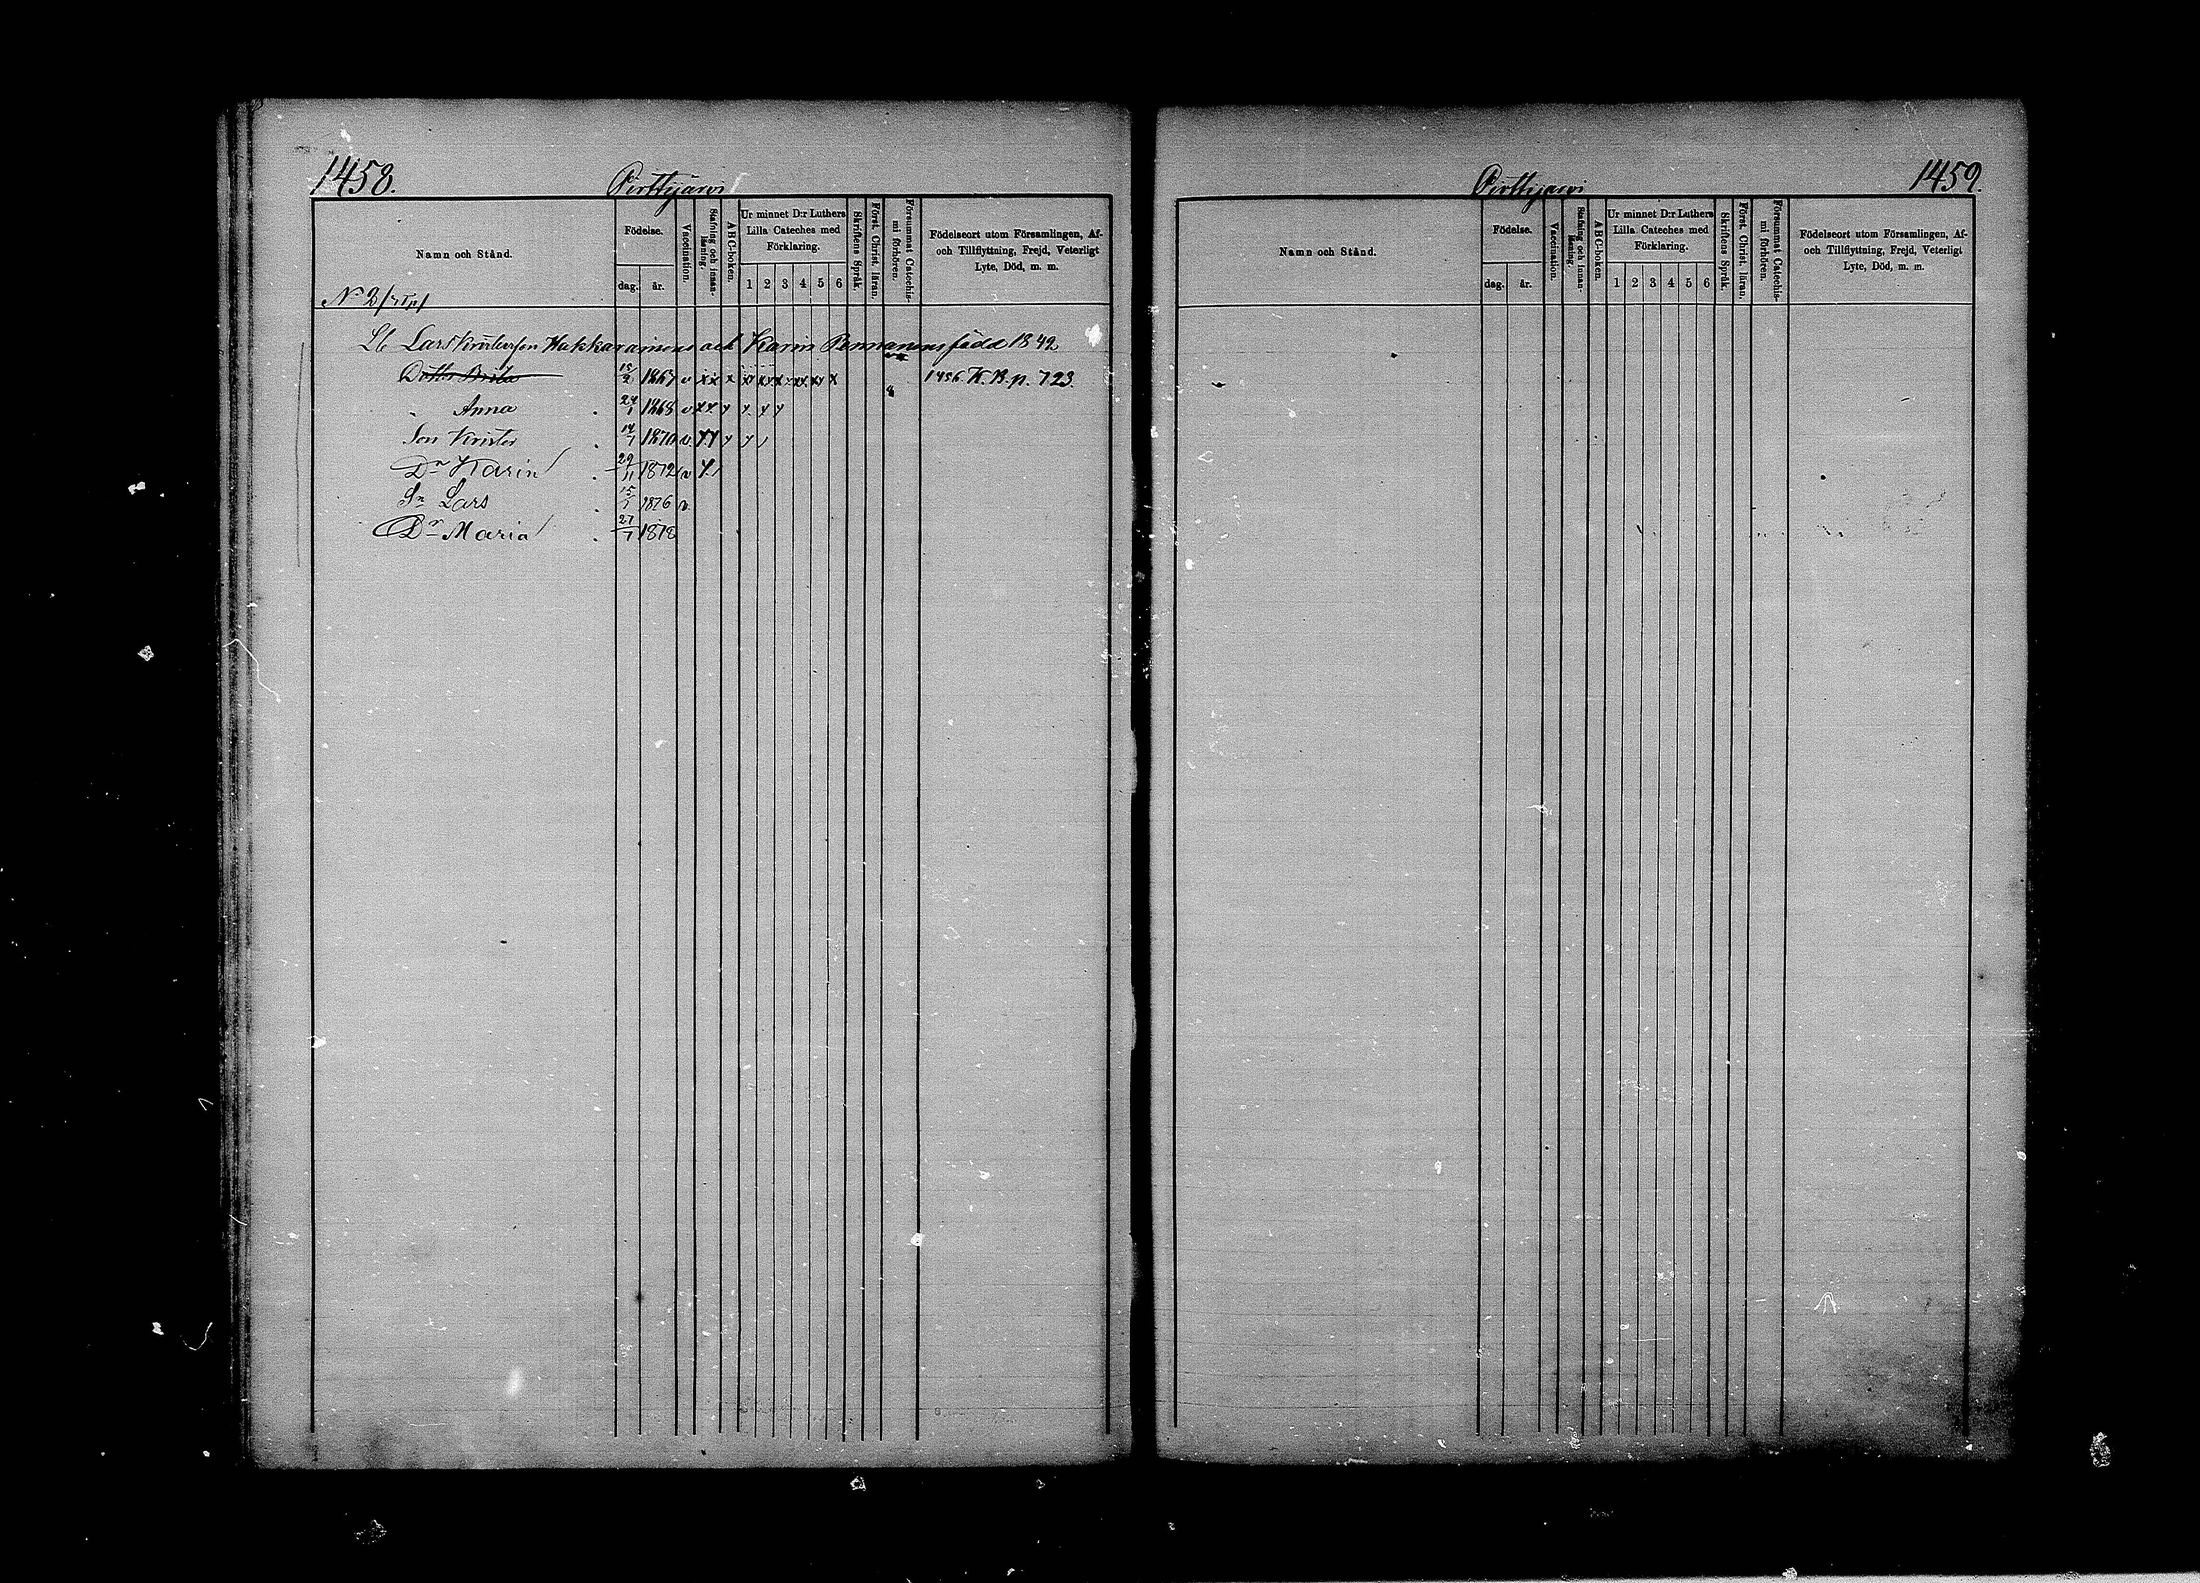 1458.
Pirttijärvi
Namn och Stånd.
Födelse.
dag. år.
Vaccination.
Stafning och innan-läsning.
ABC-boken.
Ur minnet D:r Luthers
Lilla Cateches med
Förklaring.
1 2 3 4 5 6
Skriftens Språk.
Först. Christ. läran.
Försummat Catechis-
mi förhören.
Födelseort utom Församlingen, Af-
och Tillflyttning, Frejd, Veterligt
Lyte, Död, m. m.
N° 2
Lars Kristersson Hakkarainens och Karin Pennanens född 1842
Dotter Brita 15/2 1867 v xx x x x x x x x 1456 K. B. p. 723.
Anna 24/1 1868 v
Son Krister 14/7 1870 v.
Dr Karin 29/11 1872 v
Sn Lars 15/1 1876 v
Dr Maria 27/7 1878
Pirttijärvi
1459.
Namn och Stånd.
Födelse.
dag. år.
Vaccination.
Stafning och innan-läsning.
ABC-boken.
Ur minnet D:r Luthers
Lilla Cateches med
Förklaring.
1 2 3 4 5 6
Skriftens Språk.
Först. Christ. läran.
Försummat Catechis-
mi förhören.
Födelseort utom Församlingen, Af-
och Tillflyttning, Frejd, Veterligt
Lyte, Död, m. m.